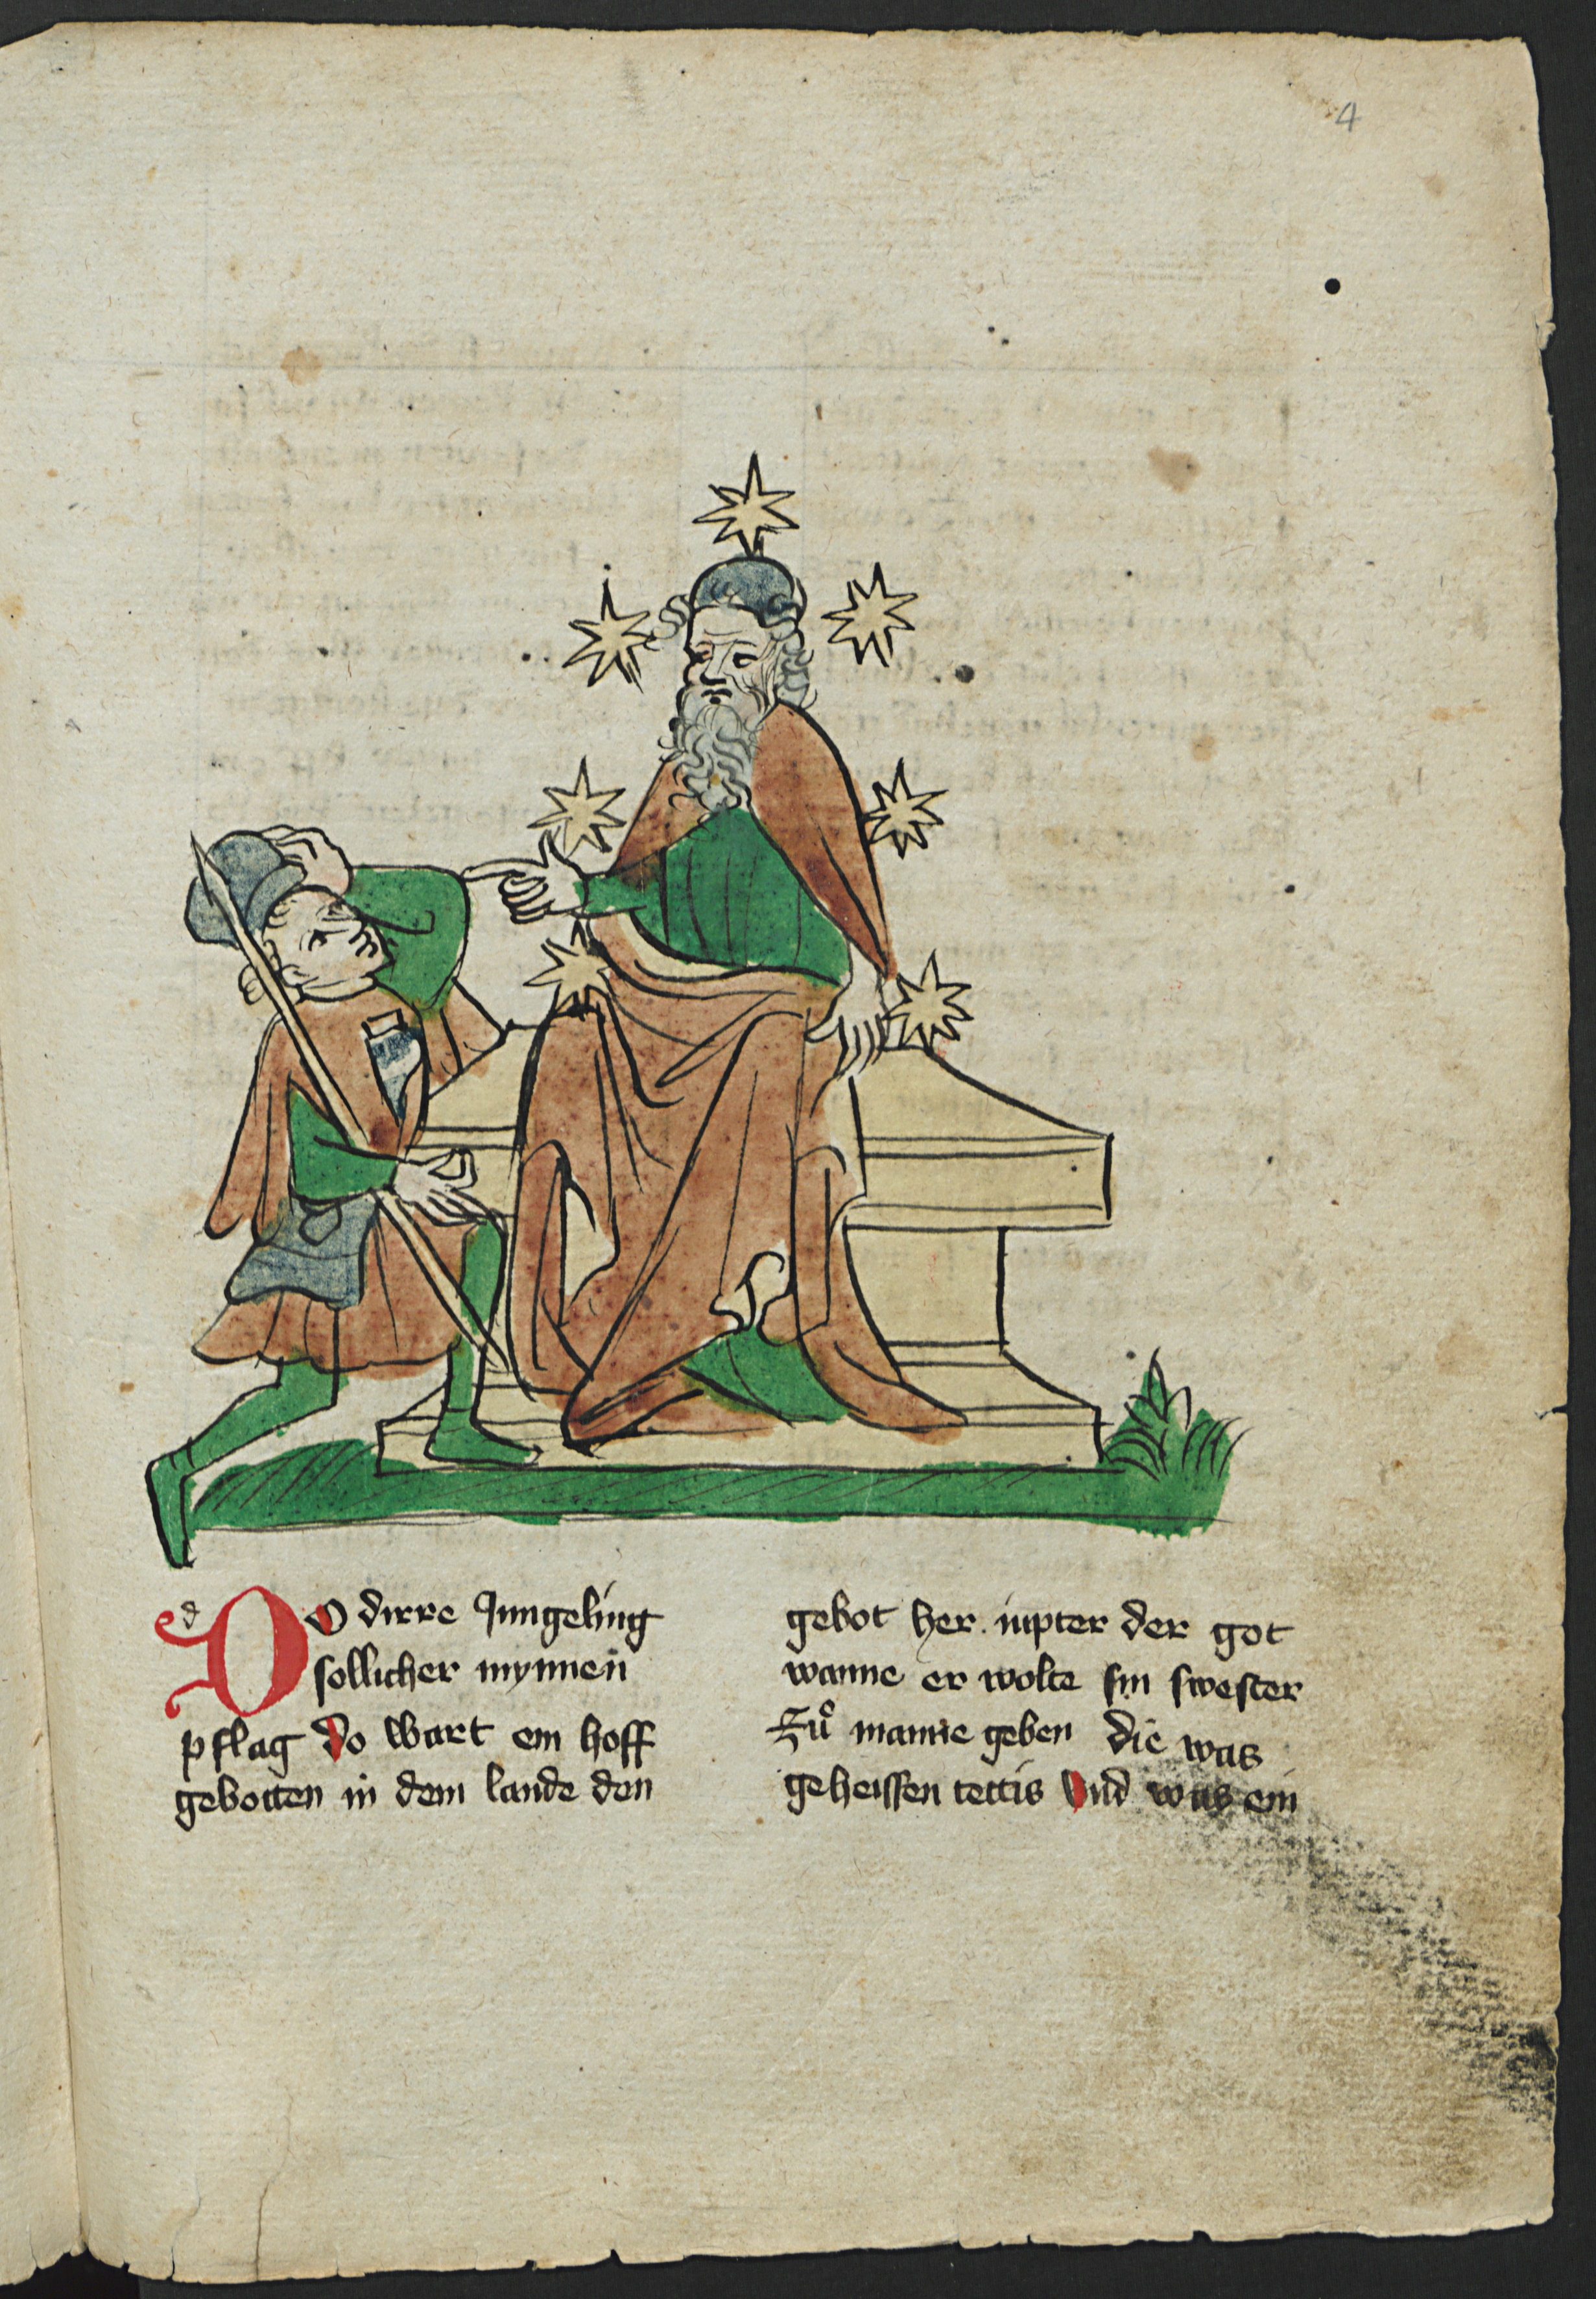 4
d DO dirre Jungeling
sollicher mynnen
pflag do wart ein hoff
gebotten in dem lande den
gebot her iupter der got
wanne er wolte sin swester
Zuͦ manne geben die was
geheissen tettis vnd was ein